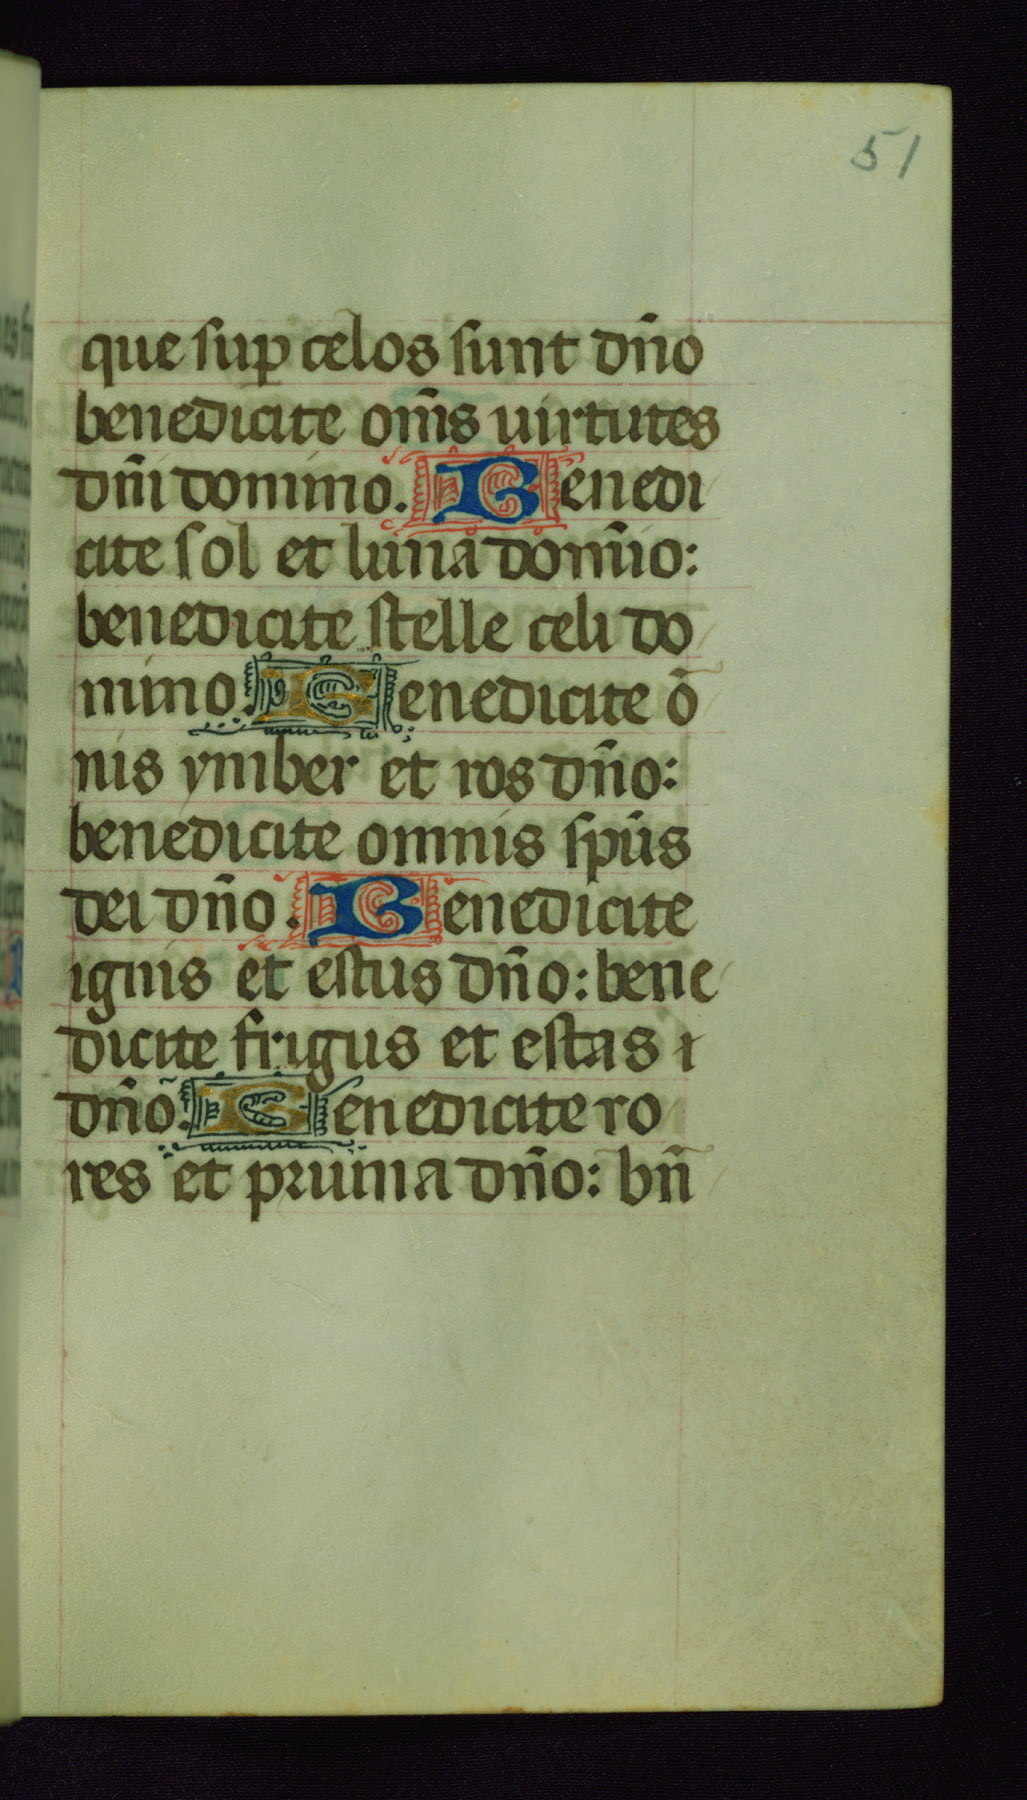 51
que sup celos sunt dño
benedicite om̃s uirtutes
dñi domino. Benedi
cite sol et luna dom̃io:
benedicite stelle celi do
mino. Benedicite õ
nis ymber et ros dño:
benedicite omnis sp̃us
dei dño. Benedicite
ignis et estus dño: bene
dicite frigus et estas
dño. Benedicite ro
res et pruina dño: bñ